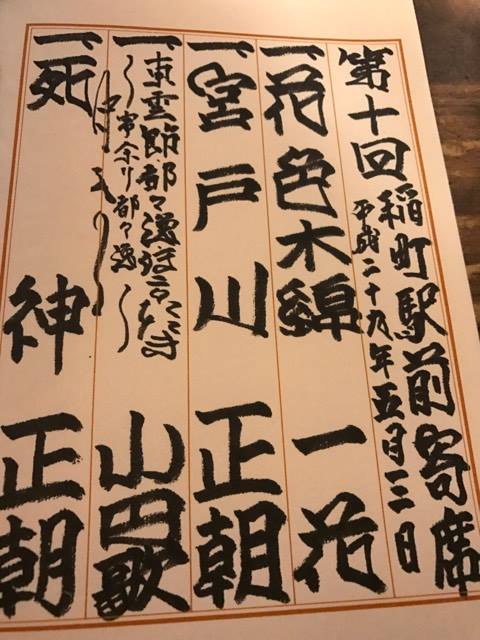 第十回 稲町駅前寄席
平成二十九年五月三日
一、花色木綿 一花
一、宮戸川 正朝
一、東雲節 都々逸
〜 字余り都々逸 〜
一、死神 正朝